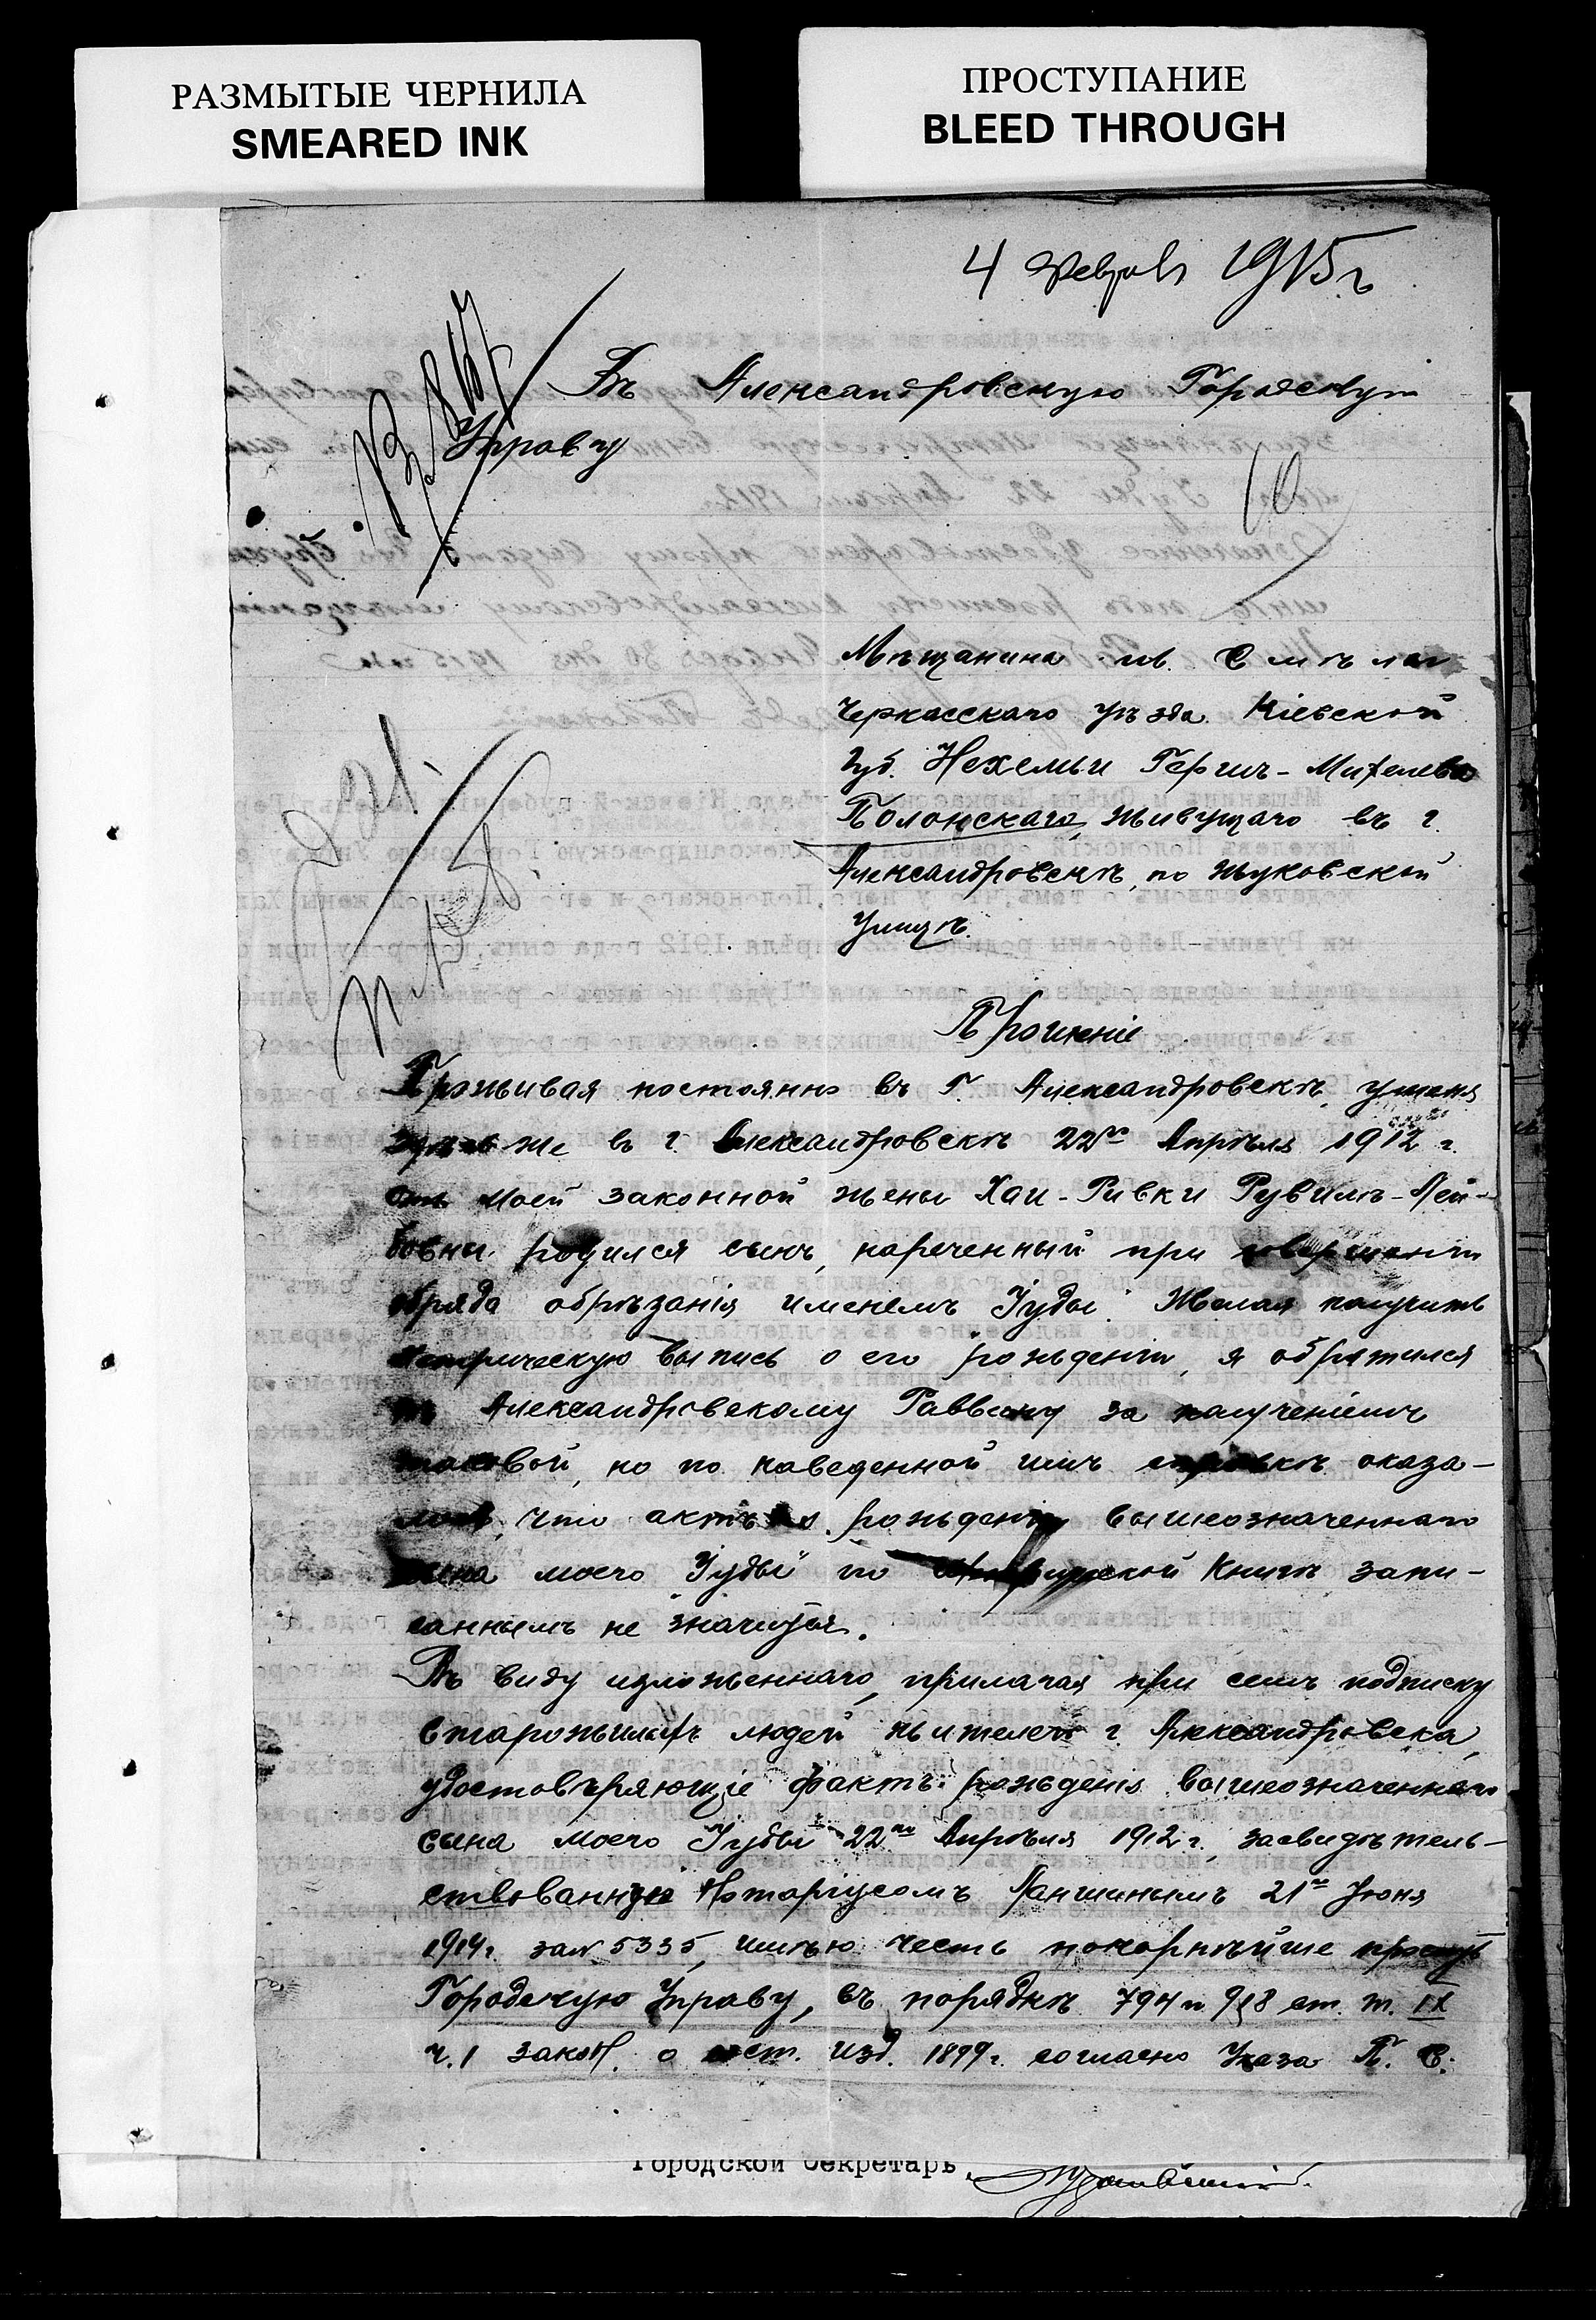 РАЗМЫТЫЕ ЧЕРНИЛА
SMEARED INK
ПРОСТУПАНИЕ
BLEED THROUGH
4 Февраля 1915 г
Въ Александровскую Городскую
Управу
10
Мѣщанина м. Смѣлы
Черкасскаго уѣзда Кіевской
губ. Нехемьи Герша-Михелева
Полонскаго, живущаго въ г.
Александровскѣ, по Жуковской
улицѣ.
Прошеніе
Проживая постоянно въ г. Александровскѣ, у меня
же въ г. Александровскѣ 22го Апрѣля 1912 г.
отъ моей законной жены Хаи-Ривки Рувимъ-Лей-
бовны родился сынъ, нареченный при совершеніи
обряда обрѣзанія именемъ Іуды. Желая получить
метрическую выпись о его рожденіи, я обратился
къ Александровскому Раввину за полученіемъ
таковой, но по наведенной имъ справкѣ оказа-
лось, что актъ о рожденіи вышеозначеннаго
сына моего „Іуды" по книгѣ запи-
саннымъ не значится.
Въ виду изложеннаго, прилагая при семъ подписку
старожилыхъ людей жителей г. Александровска,
удостовѣряющіе фактъ рожденія вышеозначеннаго
сына моего „Іуды" 22го Апрѣля 1912 г., засвидѣтель-
ствованную Нотаріусомъ Ланшинымъ 21го Іюня
1914 г. за № 5335, имѣю честь покорнѣйше просить
Городскую Управу, въ порядкѣ 794 и 918 ст. т. IX
ч. 1 закон. о сост. изд. 1899 г. согласно Указа П. С.
Городской Секретарь,